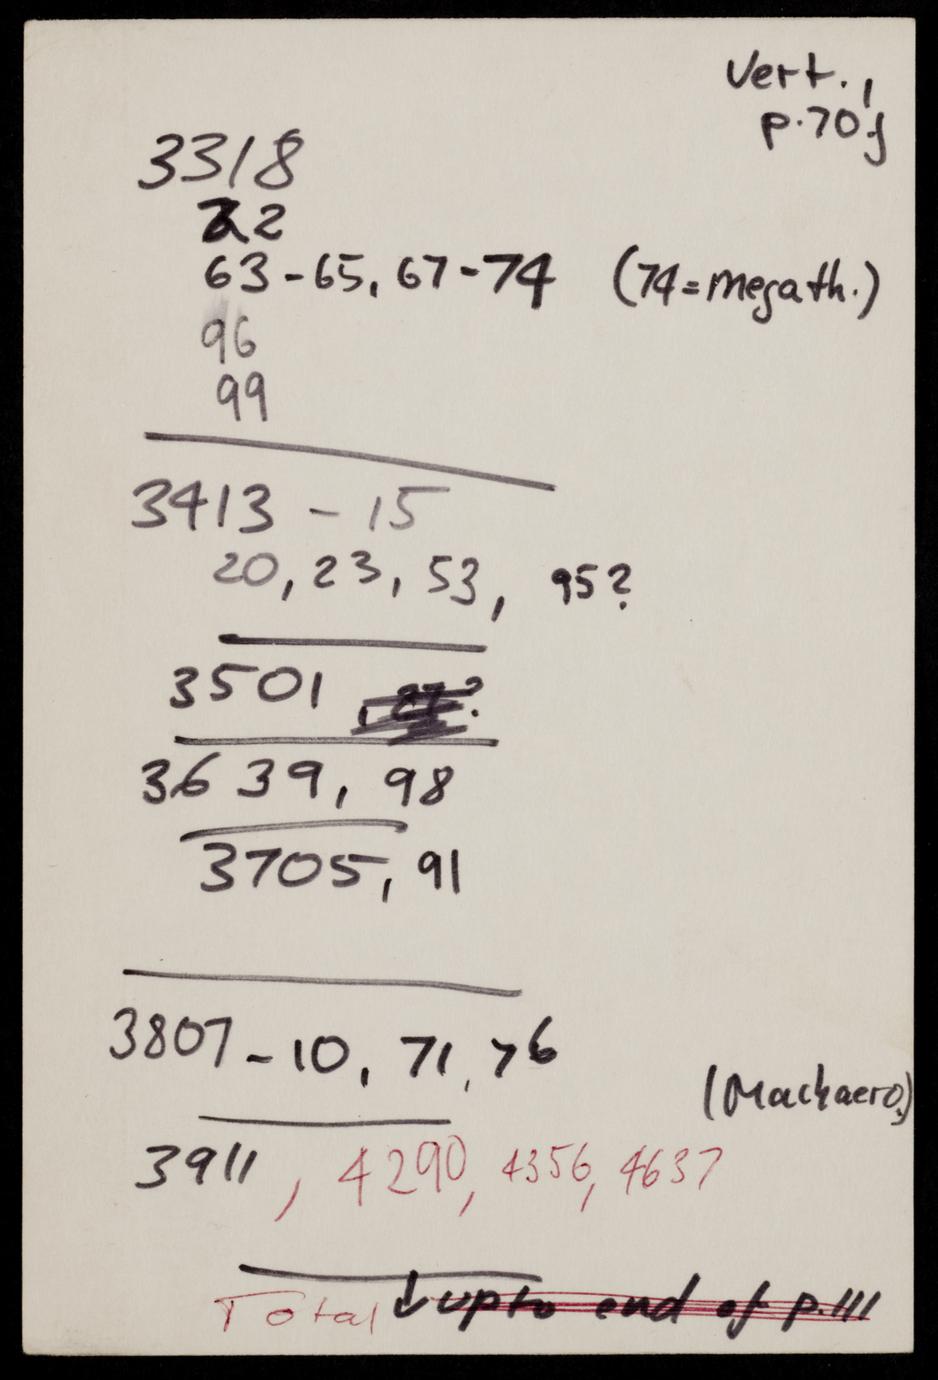 Vert.,
p.70
3318
22
63-65, 67-74 (74=megath.)
96
99
3413 - 15
20, 23, 53, 95?
3501
3639, 98
3705, 91
3807-10, 71, 76
(Machaero.)
3911, 4290, 4356, 4637
Total ↓ upto end of p.111